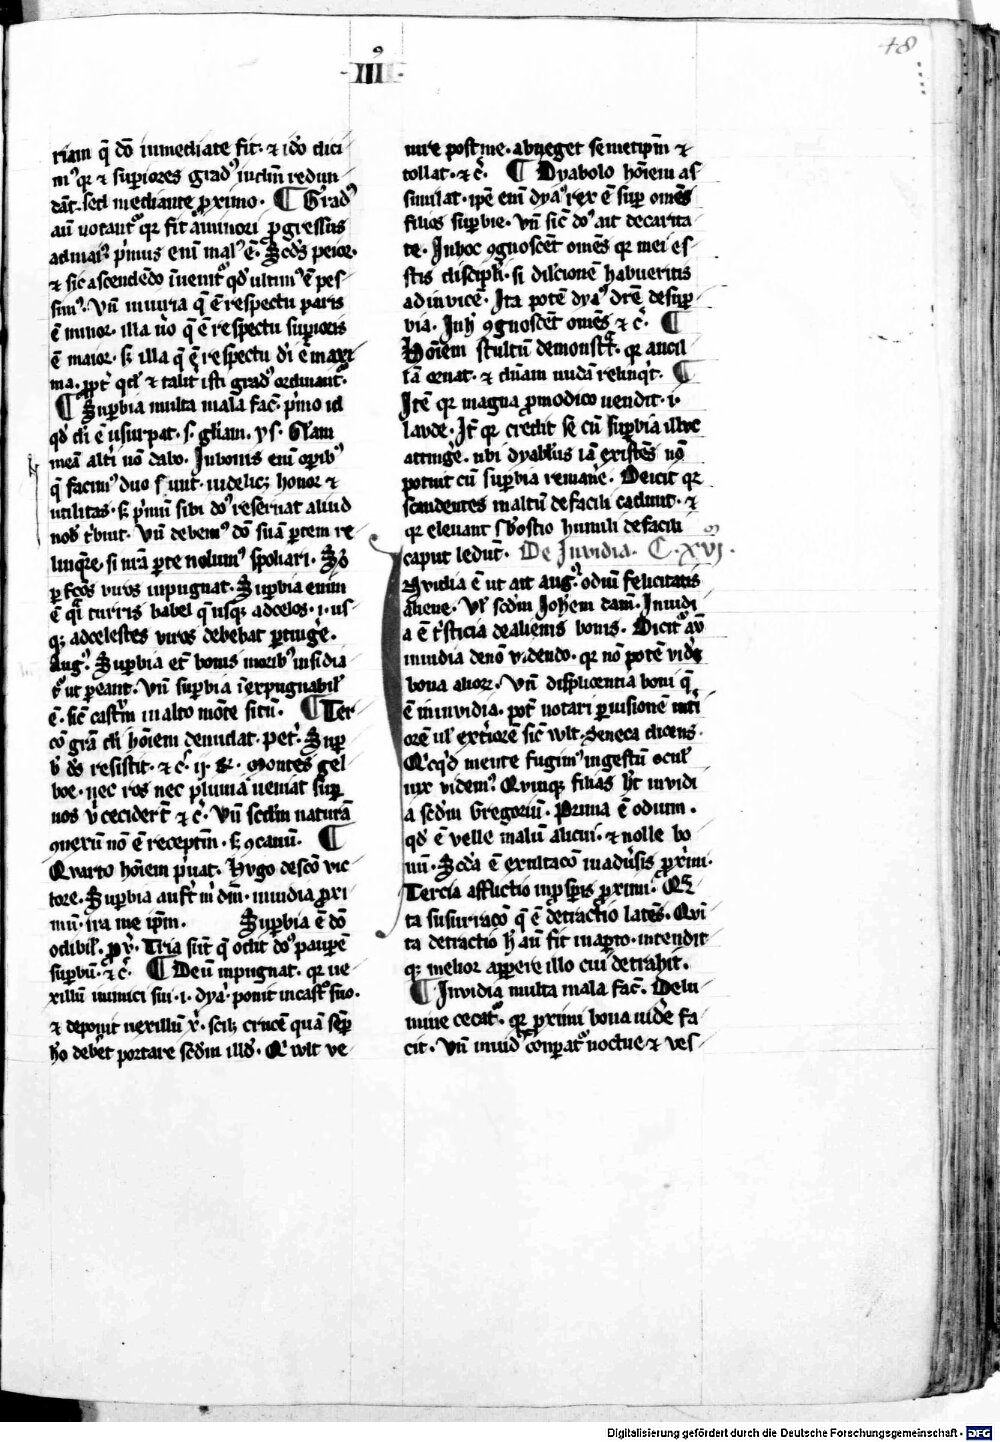 48
·IIIIꝰ·
riam q̄ dō inmediate fit· ⁊ idō dici
mꝰ qr ⁊ suꝑiores gradꝰ indm̄ redun
dāt· sed mediante ꝓximo· ¶ Gradꝰ
aūt notant᷑ qr fit a minori ꝓgressus
ad maiꝰ pͥmus enī malꝰ ē· Scd̄s peior·
⁊ sic ascendēdo īuenit᷑ qd̓ ultimꝰ ē pes
simꝰ· Vn̄ iniuria q̄ ē respectu paris
ē minor· illa ūo q̄ ē respectu suꝑioris
ē maior· sꝫ illa q̄ ē respectu dī ē maxi
ma· ꝓpt̓ qd̓ ⁊ talit̓ isti gradꝰ ordinant᷑·
¶ Suꝑbia multa mala fac̄· pͥmo id
qd̓ dī ē usurpat· s· gl̄iam· ys· Gl̄am
meā alt̓i nō dabo· In bonis enī oꝑibꝰ
q̄ facimꝰ duo sunt· uidelicꝫ honor ⁊
utilitas· sꝫ pͥmū sibi dō reseruat aliud
nob̓ tͥbuit· Vn̄ debemꝰ dō suā ꝑtem re
linq̄re· si nr̄a ꝑte nolumꝰ spoliari· Sꝫo
ꝑfc̄os uiros inpugnat· Suꝑbia enim
ē q̄i turris babel q̄ usqꝫ ad celos· i· us
qꝫ ad celestes uiros debebat ꝑting̓e·
Augꝰ· Suꝑbia et̄ bonis moribꝰ insidia
t᷑ ut ꝑeant· Vn̄ suꝑbia īexpugnabil̓
ē· sic̄ castr̄m in alto mōte situ̅· ¶ Ter
cō grā dī hōiem denudat· pet̓· Suꝑ
b̓ ds̄ resistit· ⁊ c̄· ij· R̄· Montes gel
boe· nec ros nec pluuia ueniat suꝑ
uos v̓ ceciderūt ⁊ c̄· Vn̄ scd̄m naturā
ꝯuexū nō ē receptiū· sꝫ ꝯcauū· ¶
Quarto hōiem pͥuat· Hugo de scō vic
tore· Suꝑbia aufert m̓ dm̄· inuidia ꝓxi
mū· ira me ip̄m· Suꝑbia ē dō
odibil̓· ꝓv̓· Tria sūt q̄ odit dō pauꝑē
suꝑbū· ⁊ c̄· ¶ Deū inpugnat· qr ue
xillū inimici sui· i· dyaᵒ· ponit in castꝰ suo·
⁊ deponit uexillū x̓· scilꝫ crucē quā semꝑ
hō deb̓et portare scd̄m illd̓· Qͥ wlt ve
nire post me· abneget semetip̄m ⁊
tollat· ⁊ c̄· ¶ Dyabolo hōiem as
similat· ip̄e enī dyaᵒ rex ē suꝑ om̄es
filios suꝑbie· Vn̄ sic̄ dō ait de carita
te· In hoc ꝯgnoscēt om̄es qr mei es
tis discipl̓i· si dilc̄ionē habueritis
ad inuicē· Ita potē dyaᵒ d̄re de suꝑ
bia· In h̓ ꝯgnoscēt om̄es ⁊ c̄· ¶
Hōiem stultū demonstrat᷑· qr ancil
lā ornat· ⁊ dn̄am nudā relinqͥt· ¶
Itē qr magna ꝓ modico uendit· i·
laude· It̄ qr credit se cū suꝑbia illuc
atting̓e· ubi dyabl̓us iā existēs nō
potuit cū suꝑbia reman̓e· Deicit qr
scandentes in altū de facili cadunt· ⁊
qr eleuant s̓ b hostio humili de facili
caput ledunt· De Inuidia· C· xvj·
Inuidia ē ut ait augꝰ· odiū felicitatis
aliene· Vl̓ scd̄m Joh̄em dam̄· Inuidi
a ē tͥsticia de alienis bonis· Dicit᷑ aū
inuidia de nō videndo· qr nō potē vid̓e
bona alior̄· Vn̄ displicentia boni q̄
ē in inuidia· pot̄ notari ꝑ uisionē inti
orē ul̓ ext̓iorē sic̄ wlt· Seneca dicens·
Quicqͥd mente fugimꝰ ingestū oculis
uix videmꝰ· Quinqꝫ filias h̓t inuidi
a scd̄m Gregoriū· Prima ē odium·
qd̓ ē velle malū alicui· ⁊ nolle bo
nū· Scd̓a ē exultacō in adūsis ꝓximi·
Tercia afflictio in ꝓsꝑis ꝓximi· Quar
ta susurracō q̄ ē detractio latēs· Quī
ta detractio h̄ aūt fit in aꝑto· intendit
qꝫ melior apparere illo cui detrahit·
¶ Inuidia multa mala fac̄· De lu
mine cecat᷑· qr ꝓximi bona uid̓e fa
cit· Vn̄ inuidꝰ cōꝑat᷑ noctue ⁊ ves
Digitalisierung gefördert durch die Deutsche Forschungsgemeinschaft - DFG